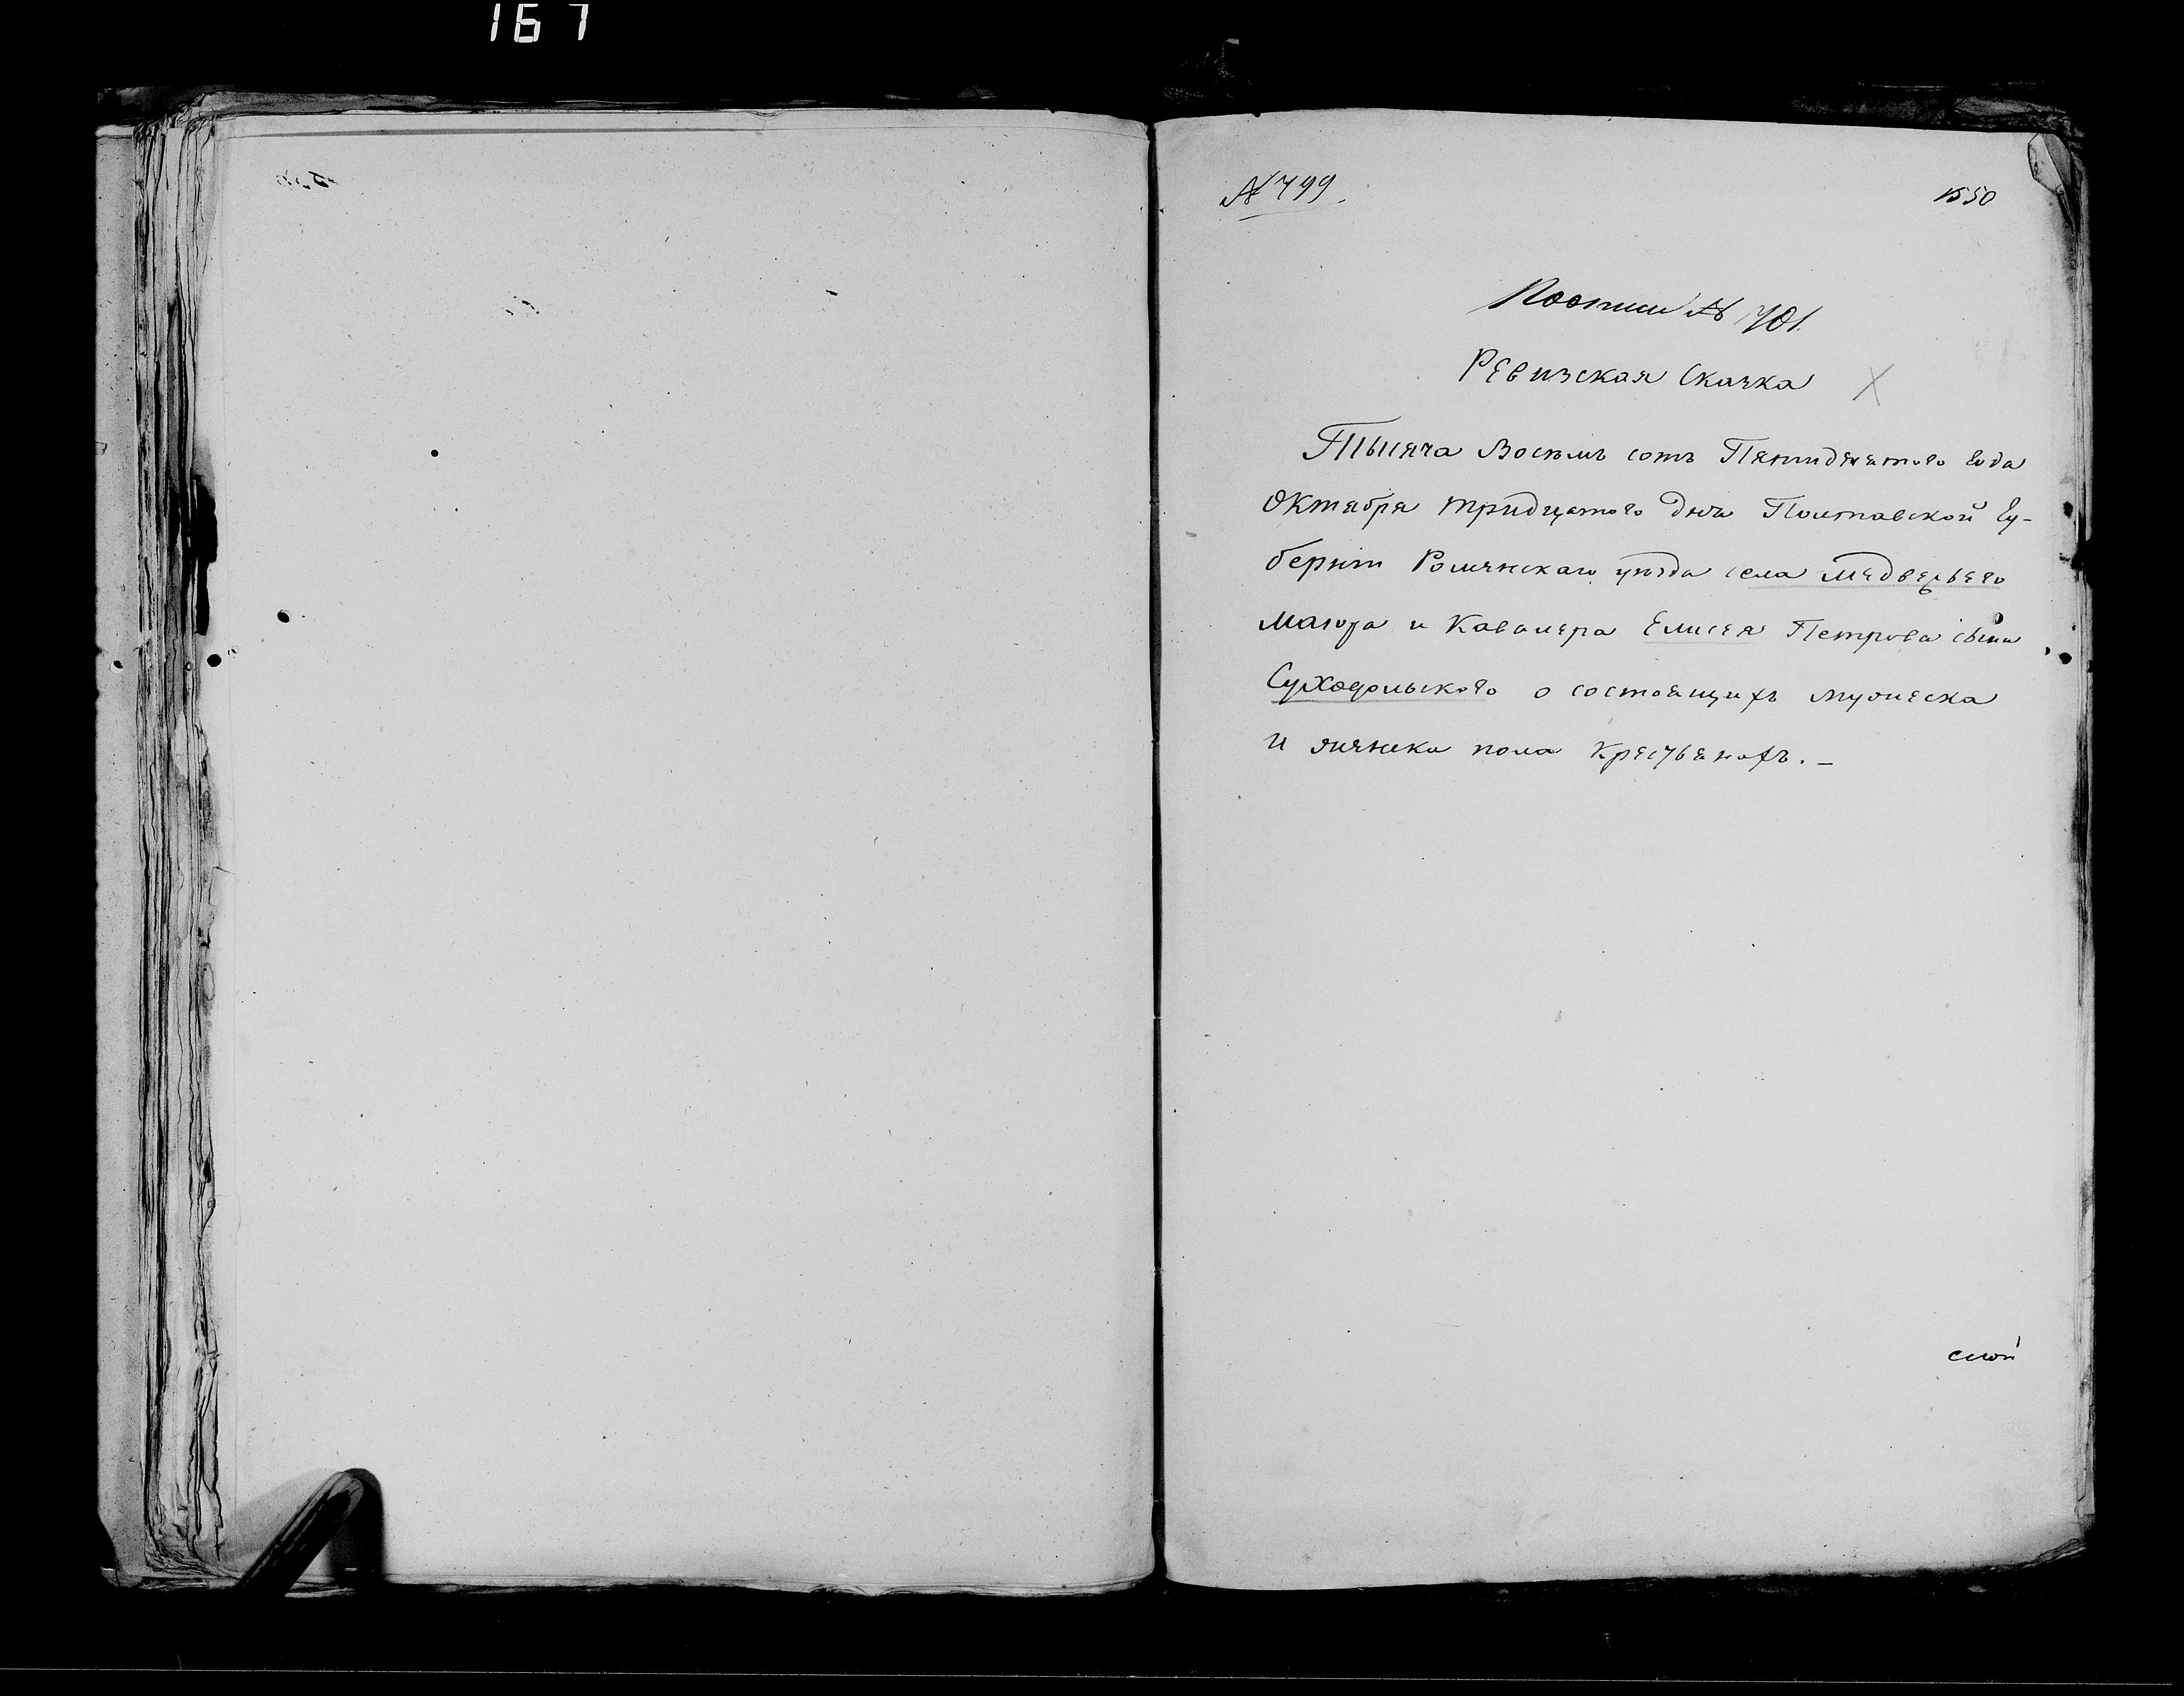 167
№ 799.
1550
По описи № 701.
Ревизская Сказка
Тысяча Восемь сотъ Пятидесятого года
Октября тридцатого дня Полтавской Гу-
берніи Роменскаго уѣзда села Медвежьего
Маіора и Кавалера Елисея Петрова сына
Суходольского о состоящихъ мужеска
и женска пола крестьянахъ. —